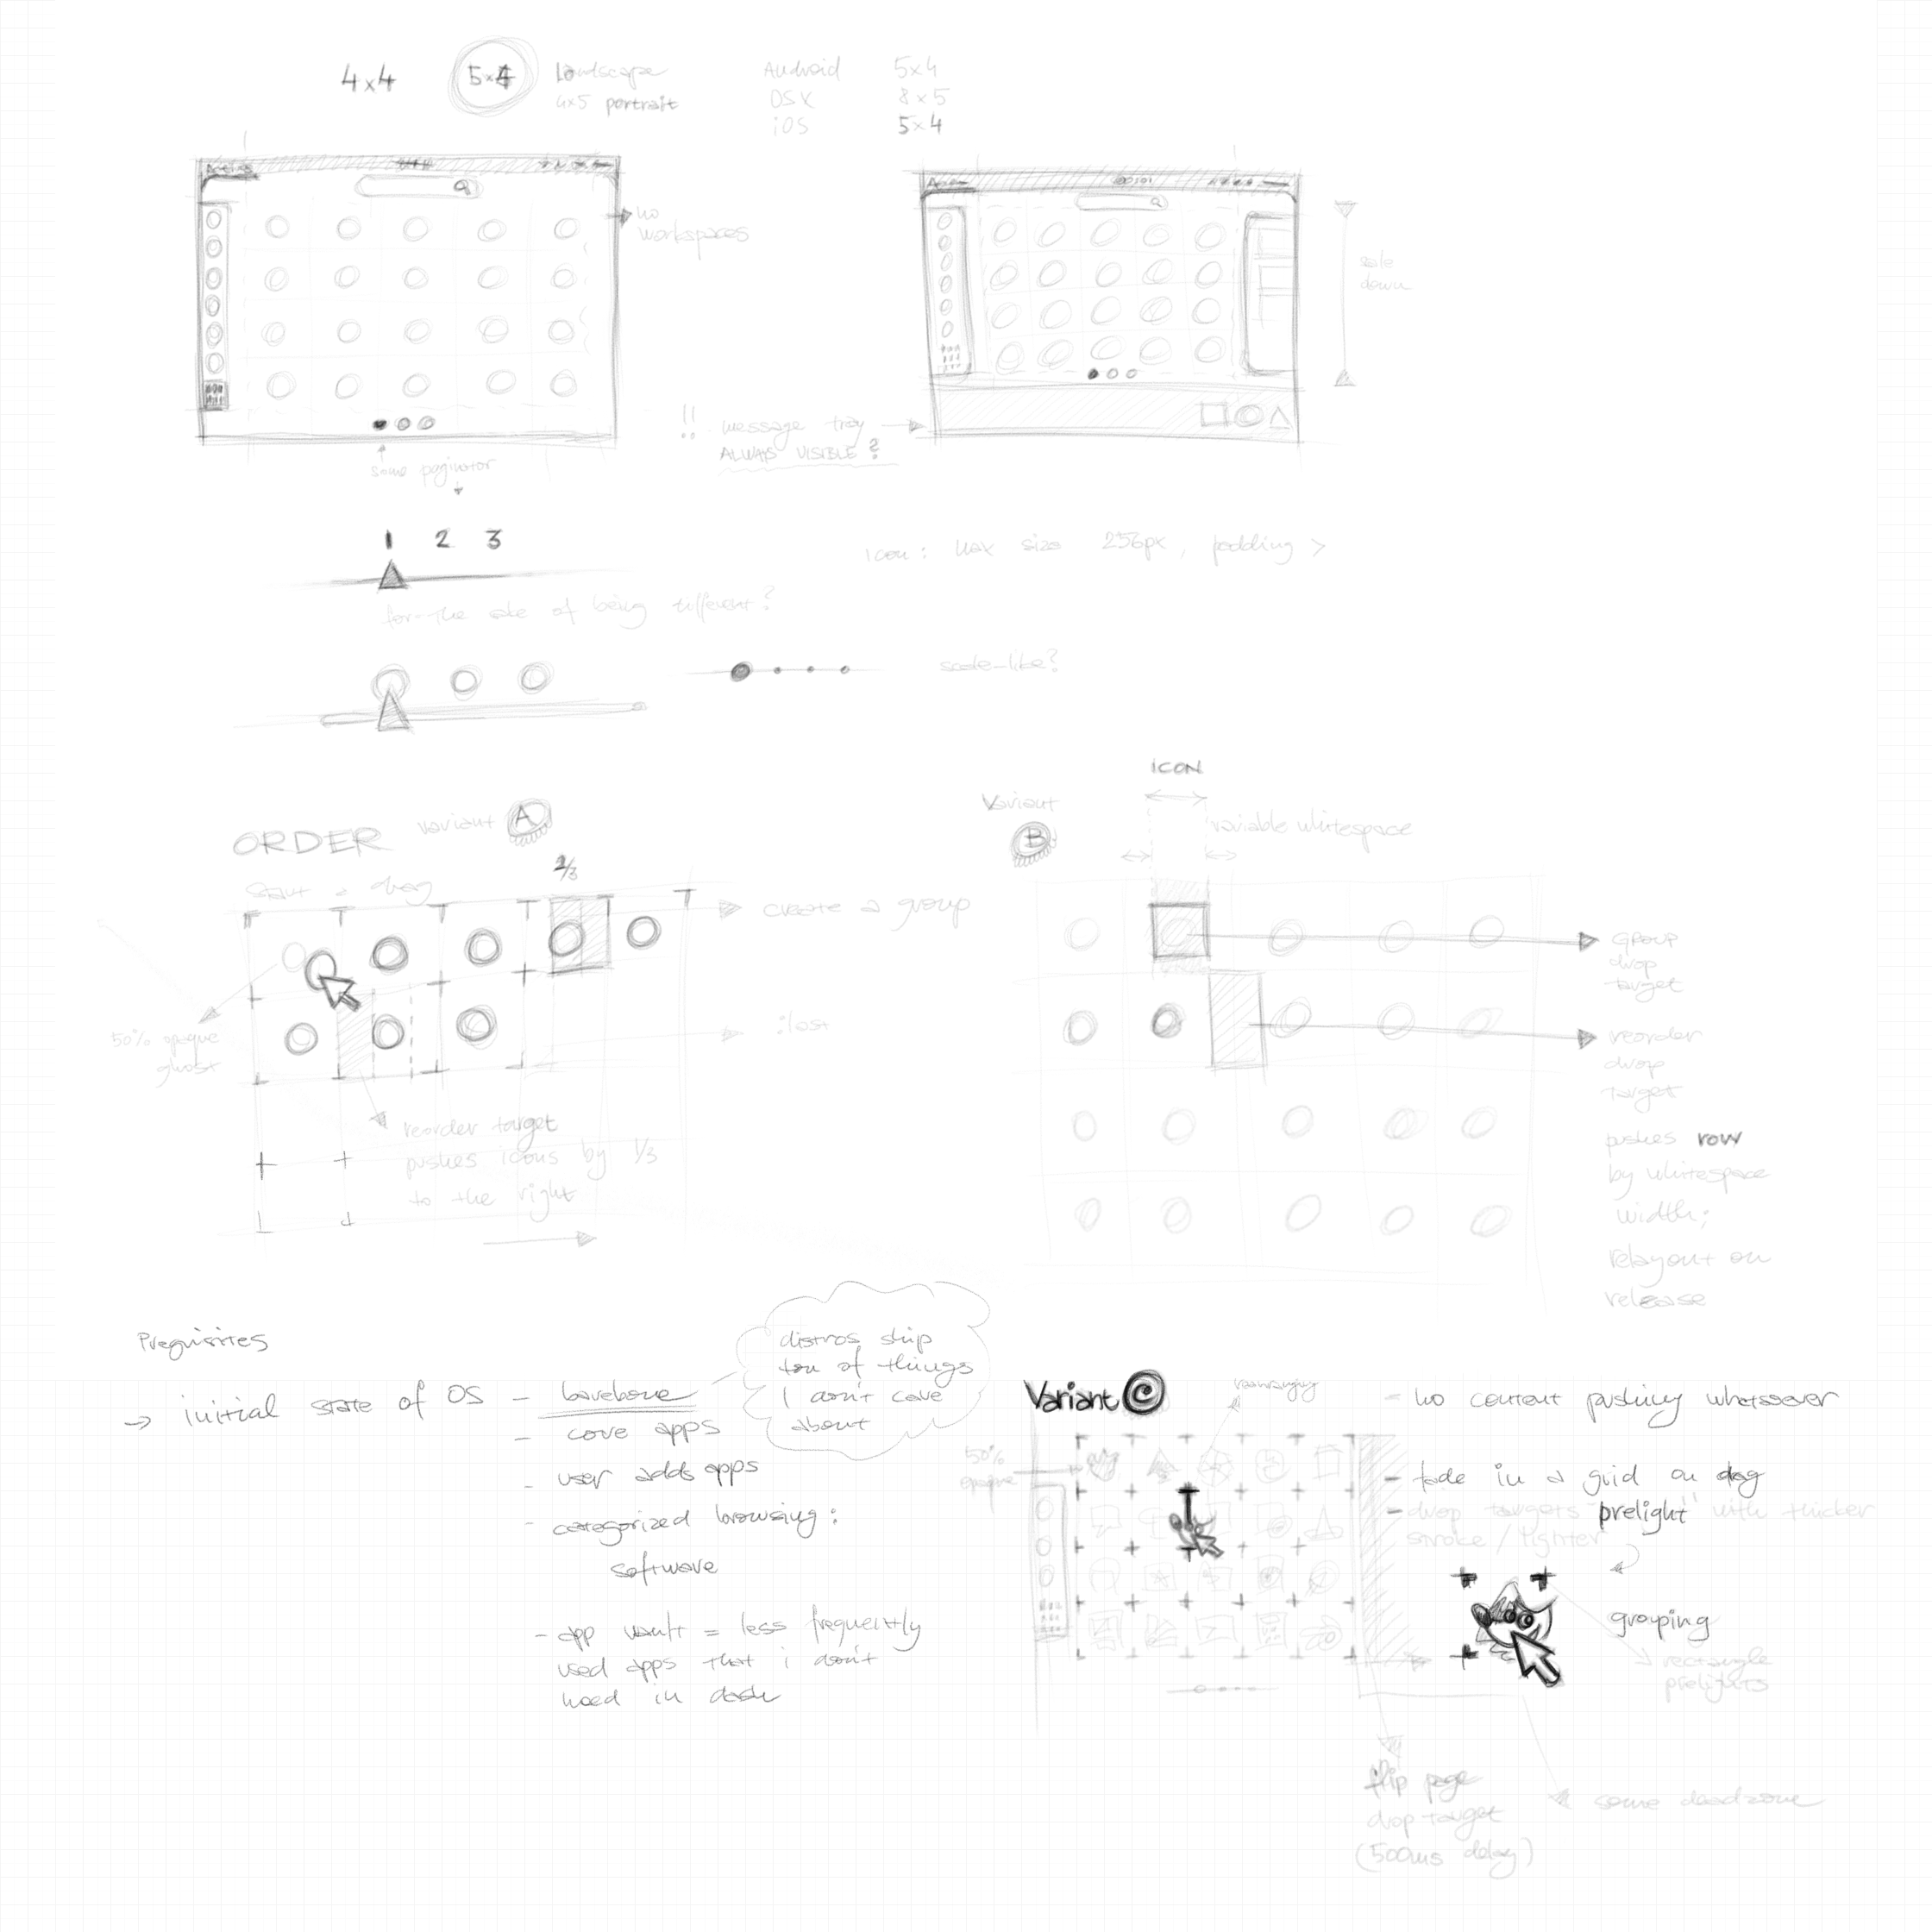 4x4
5x4
Landscape
4x5 portrait
Android 5x4
OSX 8x5
iOS 5x4
no
workspaces
some paginator
!! message tray
ALWAYS VISIBLE?
scale
down
1 2 3
for the sake of being different?
icon: max size 256px, padding >
scale-like?
ORDER variant A
start = drag
2/3
create a group
50% opaque
ghost
:last
reorder target
pushes icons by 1/3
to the right
Variant
B
ICON
variable whitespace
Group
drop
target
reorder
drop
target
pushes row
by whitespace
width;
relayout on
release
Prequisites
→ initial state of OS - barebone
- core apps
- user adds apps
- categorized browsing:
software
- app vault = less frequently
used apps that i don't
need in dash
distros ship
ton of things
I don't care
about
Variant C
rearranging
50%
opaque
- no content pushing whatsoever
- fade in a grid on drag
- drop targets "prelight" with thicker
stroke / lighter
grouping
rectangle
prelights
flip page
drop target
(500ms delay)
some deadzone